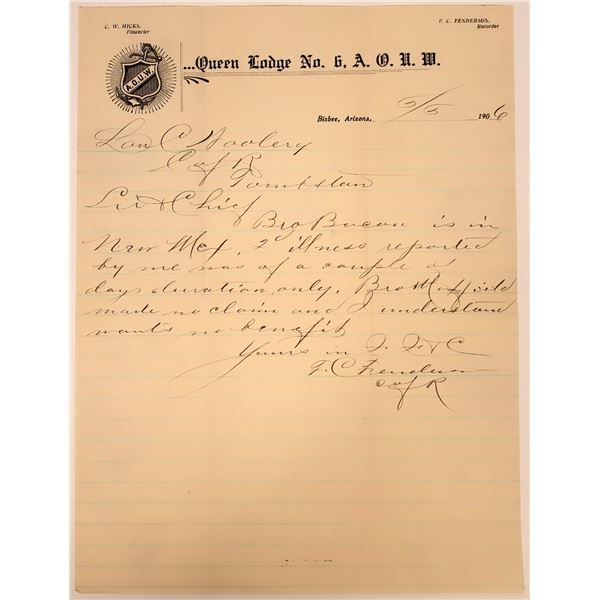 C. W. HICKS,
Financier
F. C. FENDERSON,
Recorder
A.O.U.W.
...Queen Lodge No. 6, A. O. U. W.
Bisbee, Arizona, 5/5 1906
Lou C Woolery
C of R
Tombston
Sir & Chief
Bro Bacon is in
New Mex, 2d illness reported
by me was of a couple of
days duration only, Bro Moffield
made no claim and I understand
wants no benefit
Yours in F. F. & C
F. C Fenderson
C of R